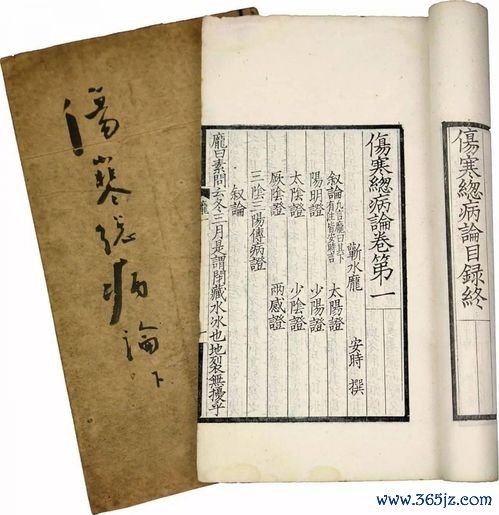 傷寒總病論下
傷寒總病論目録終
傷寒總病論卷第一
蘄水龐 安時 撰
叙論 九言龐曰其下有註皆安時言 太陽證
陽明證 少陽證
太陰證 少陰證
厥陰證 兩感證
三陰三陽傳病證
叙論
龐曰素問云冬三月是謂閉藏水冰地裂無擾乎
www.365jz.com